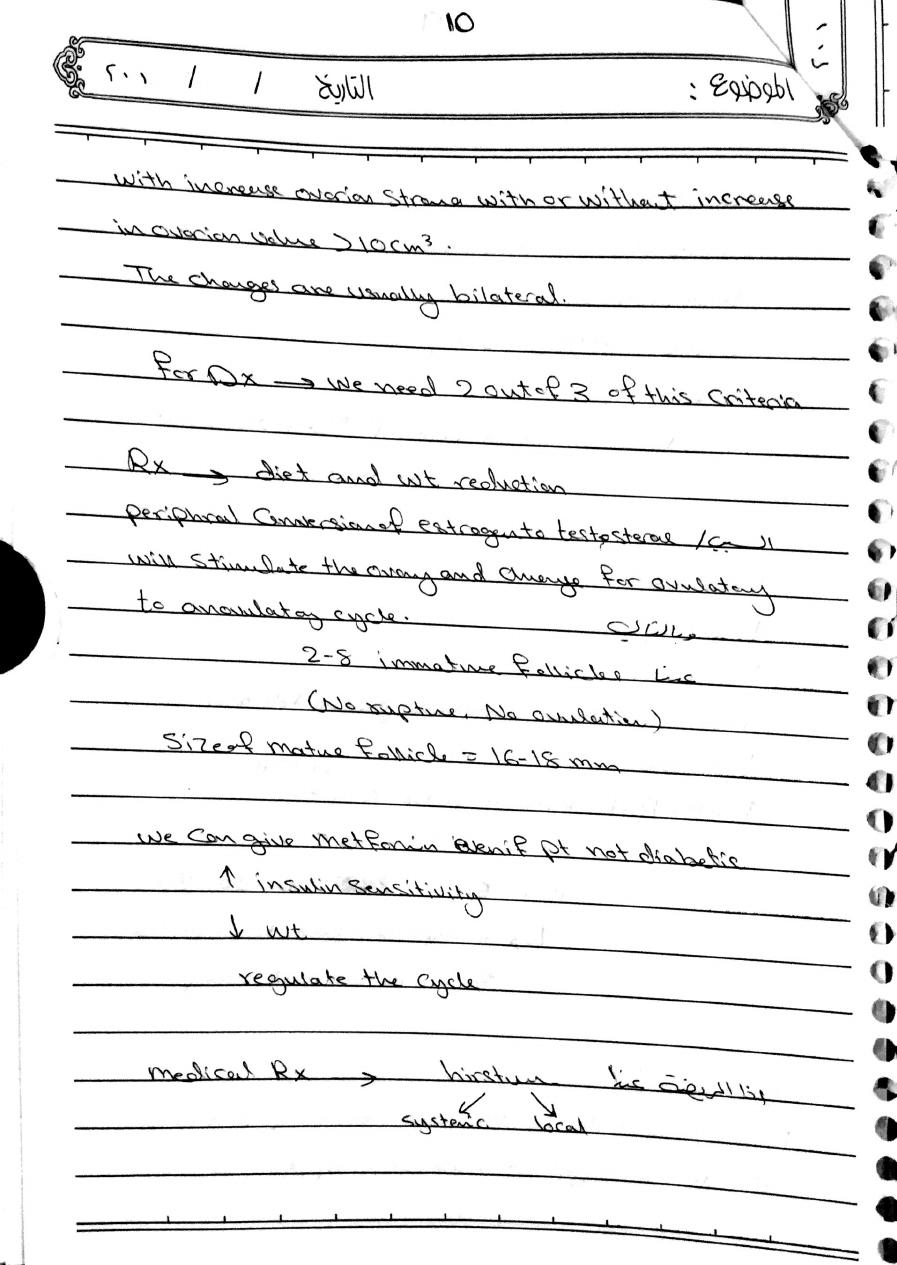 10
الموضوع : التاريخ / / ٢٠٠١
with increase ovarian stroma with or without increase
in ovarian volume >10cm³.
The changes are usually bilateral.
for Dx → we need 2 out of 3 of this criteria
Rx → diet and wt reduction
periphral Conversion of estrogen to testosteral / السبب
will stimulate the ovary and change for ovulatory
to anovulatory cycle.
وبالتالي
2-8 immature follicles عندها
(No rupture, No ovulation)
Size of matue follicle = 16-18 mm
we Can give metformin even if pt not diabetic
↑ insulin sensitivity
↓ wt
regulate the cycle
medical Rx → إذا المريضة عندها hirstum
systemic local